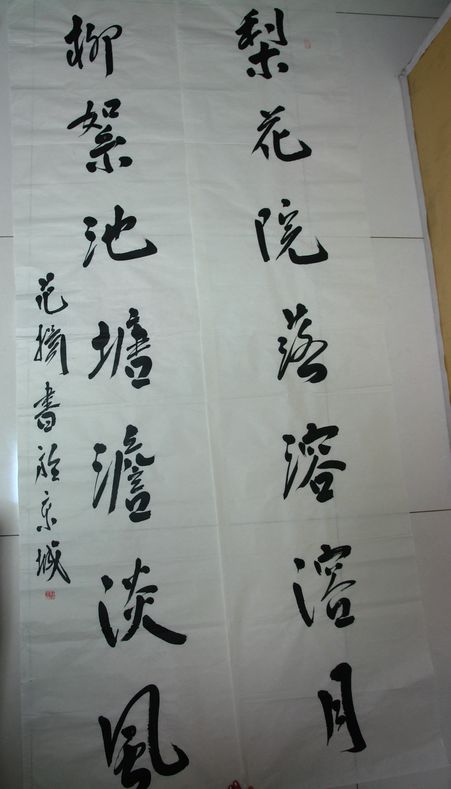 梨花院落溶溶月
柳絮池塘澹淡風
范書於京城